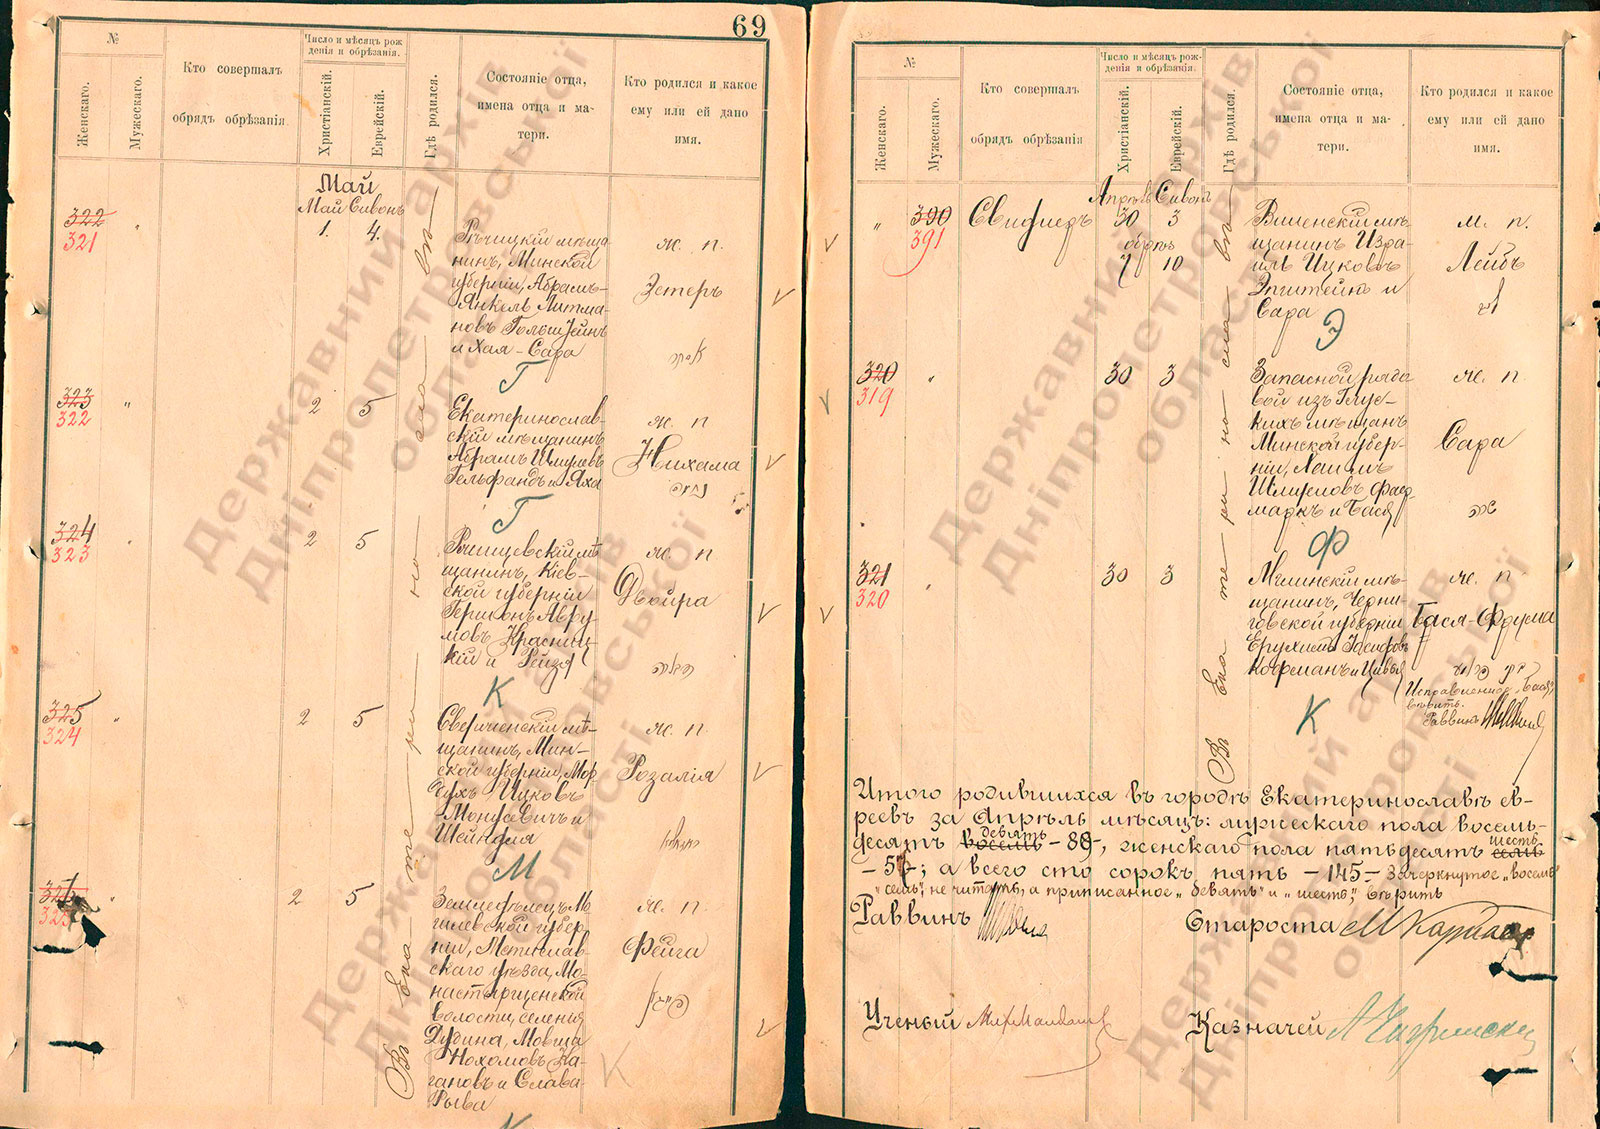 69
№
Женскаго.
Мужескаго.
Кто совершалъ
обрядъ обрѣзанія.
Число и мѣсяцъ рож
денія и обрѣзанія.
Христіанскій.
Еврейскій.
Гдѣ родился.
Состояніе отца,
имена отца и ма-
тери.
Кто родился и какое
ему или ей дано
имя.
Май
Май Сивонъ
322
321
"
1.
4.
Рѣчицкій мѣща
нинъ, Минской
губерніи, Абрамъ-
Янкель Литма-
новъ Гольштейнъ
и Хая-Сара
ж. п.
Эстеръ
Г
323
322
"
2
5
Екатеринослав-
скій мѣщанинъ
Абрамъ Шмулевъ
Гельфандъ и Яха
ж. п
Нихама
נחמה
Г
324
323
2
5
Ржищевскій мѣ
щанинъ, Кіев-
ской губерніи
Гершонъ Авру
мовъ Красниц-
кій и Рейзя
ж. п
Двойра
К
325
324
"
2
5
Сверженскій мѣ
щанинъ, Мин-
ской губерніи, Мор
духъ Ицковъ
Монусевичъ и
Шейндля
ж. п.
Розалія
М
326
325
"
2
5
Земледѣлецъ Мо
гилевской губер
ніи, Мстислав-
скаго уѣзда, Мо-
настырщенской
волости, селенія
Дудина, Мовша
Нохомовъ Ка-
гановъ и Слава-
Рыва
ж. п.
Фейга
К
Въ Екатеринославѣ
№
Женскаго.
Мужескаго.
Кто совершалъ
обрядъ обрѣзанія
Число и мѣсяцъ рож-
денія и обрѣзанія.
Христіанскій.
Еврейскій.
Гдѣ родился.
Состояніе отца,
имена отца и ма-
тери.
Кто родился и какое
ему или ей дано
имя.
Апрѣль Сивонъ
"
390
391
Свифледъ
30
3
обрѣз
7
10
Виленскій мѣ
щанинъ Изра-
иль Ицковъ
Эпштейнъ и
Сара
м. п.
Лейбъ
Э
320
319
"
30
3
Запасной рядо
вой изъ Глус-
кихъ мѣщанъ
Минской губер-
ніи, Хаимъ
Шлиомовъ Фай
маркъ и Бася
ж. п
Сара
שרה
Ф
321
320
30
3
Мглинскій мѣ-
щанинъ, Черни-
говской губерніи
Ерухимъ Іосифовъ
Кофманъ и Цивья
ж. п
Бася-Фрума
Исправленное "Бася"
вѣрить.
Раввинъ
К
Въ Екатеринославѣ
Итого родившихся въ городѣ Екатеринославѣ ев-
реевъ за Апрѣль мѣсяцъ: мужескаго пола восемь-
десятъ восемь девять -89-, женскаго пола пятьдесятъ семь шесть
-56-; а всего сто сорокъ пять -145- Зачеркнутое "восемь"
"семь", не читать, а приписанное "девять" и "шесть", вѣрить
Раввинъ
Староста
Ученый
Казначей
Державний архів
Дніпропетровської
області
Державний архів
Дніпропетровської
області
Державний архів
Дніпропетровської
області
Державний архів
Дніпропетровської
області